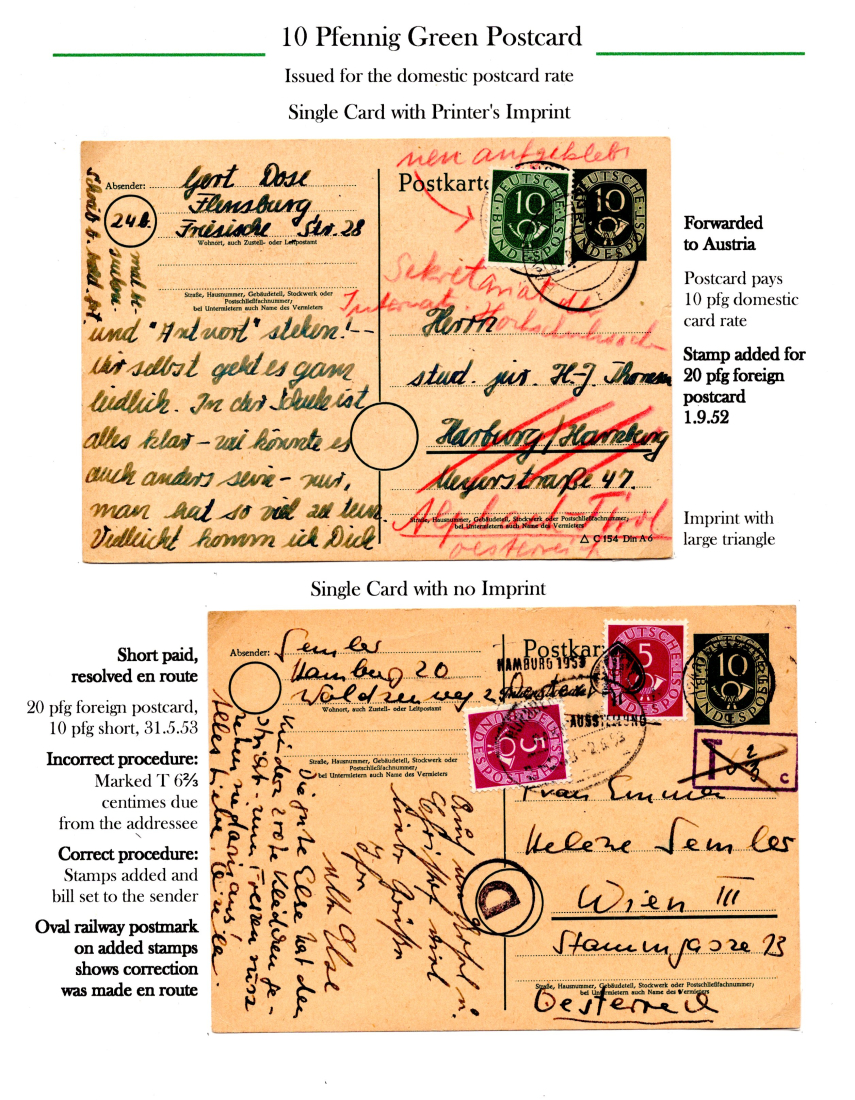 10 Pfennig Green Postcard
Issued for the domestic postcard rate
Single Card with Printer's Imprint
neu aufgeklebt
Absender: Gert Dose
Flensburg
Friesische Str. 28
24b
Wohnort, auch Zustell- oder Leitpostamt
Straße, Hausnummer, Gebäudeteil, Stockwerk oder
Postschließfachnummer;
bei Untermietern auch Name des Vermieters
und "Antwort" stehen! -
Mir selbst geht es ganz
leidlich. In der Schule ist
alles klar - wie könnte es
auch anders sein - nur,
man hat so viel zu tun.
Vielleicht komm ich Dich
Postkarte
DEUTSCHE
10
BUNDESPOST
DEUTSCHE
10
BUNDESPOST
Sekretariat d.
Internat. Hochschulwoch
Herrn
stud. jur. H-J. Thomsen
Harburg/Hamburg
Meyerstraße 47.
Alpbach-Tirol
Straße, Hausnummer, Gebäudeteil, Stockwerk oder Postschließfachnummer;
bei Untermietern auch Name des Vermieters
Oesterreich
△ C 154 Din A 6
Forwarded
to Austria
Postcard pays
10 pfg domestic
card rate
Stamp added for
20 pfg foreign
postcard
1.9.52
Imprint with
large triangle
Single Card with no Imprint
Short paid,
resolved en route
20 pfg foreign postcard,
10 pfg short, 31.5.53
Incorrect procedure:
Marked T 6⅔
centimes due
from the addressee
Correct procedure:
Stamps added and
bill set to the sender
Oval railway postmark
on added stamps
shows correction
was made en route
Absender: Semler
Hamburg 20
Wohnort, auch Zustell- oder Leitpostamt
Straße, Hausnummer, Gebäudeteil, Stockwerk oder
Postschließfachnummer;
bei Untermietern auch Name des Vermieters
Die gute Else hat den
Kindern 2 rote Kleidchen ge-
Alles Liebe
Postkarte
HAMBURG 1953
AUSSTELLUNG
DEUTSCHE
5
BUNDESPOST
DEUTSCHE
5
BUNDESPOST
DEUTSCHE
10
BUNDESPOST
T 6 2/3 c
Frau Emma
Helene Semler
D
Wien III
Stammgasse 13
Straße, Hausnummer, Gebäudeteil, Stockwerk oder Postschließfachnummer;
bei Untermietern auch Name des Vermieters
Oesterreich